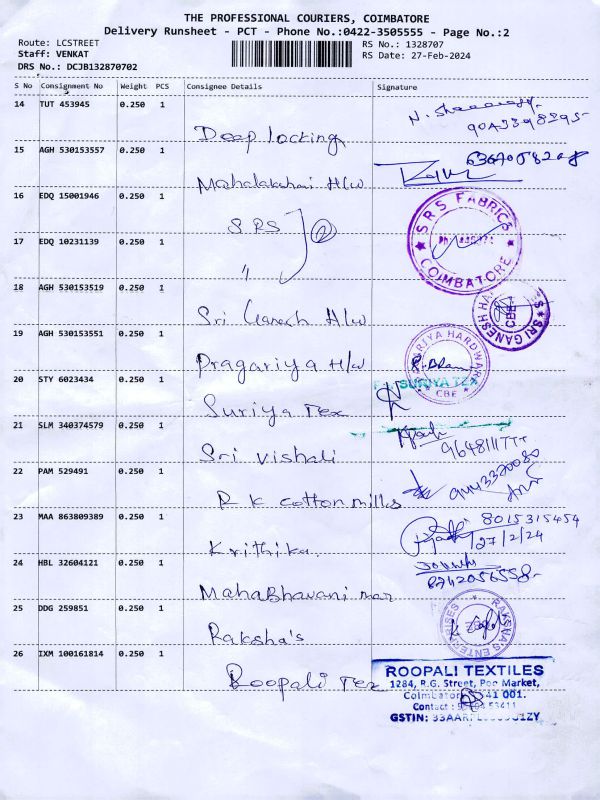 THE PROFESSIONAL COURIERS, COIMBATORE
Delivery Runsheet - PCT - Phone No.:0422-3505555 - Page No.:2
Route: LCSTREET
Staff: VENKAT
DRS No.: DCJB132870702
RS No.: 1328707
RS Date: 27-Feb-2024
S No Consignment No Weight PCS Consignee Details Signature
14 TUT 453945 0.250 1
Deep locking
15 AGH 530153557 0.250 1
Mahalakshmi H/w
16 EDQ 15001946 0.250 1
SRS 2
SRS FABRICS
COIMBATORE
17 EDQ 10231139 0.250 1
"
18 AGH 530153519 0.250 1
Sri Ganesh H/w
SRI GANESH
CBE
19 AGH 530153551 0.250 1
Pragariya H/w
HARDWARE
CBE
20 STY 6023434 0.250 1
Suriya Tex
SURIYA TEX
21 SLM 340374579 0.250 1
Sri vishali
22 PAM 529491 0.250 1
R k cotton mills
23 MAA 863809389 0.250 1
Krithika
8015315454
27/2/24
24 HBL 32604121 0.250 1
MahaBhavani
8742056558
25 DDG 259851 0.250 1
Raksha's
RAKSHA'S ENTERPRISES
26 IXM 100161814 0.250 1
Roopali Tex
ROOPALI TEXTILES
1284, R.G. Street, Poo Market,
Coimbatore 41 001.
Contact :
GSTIN: